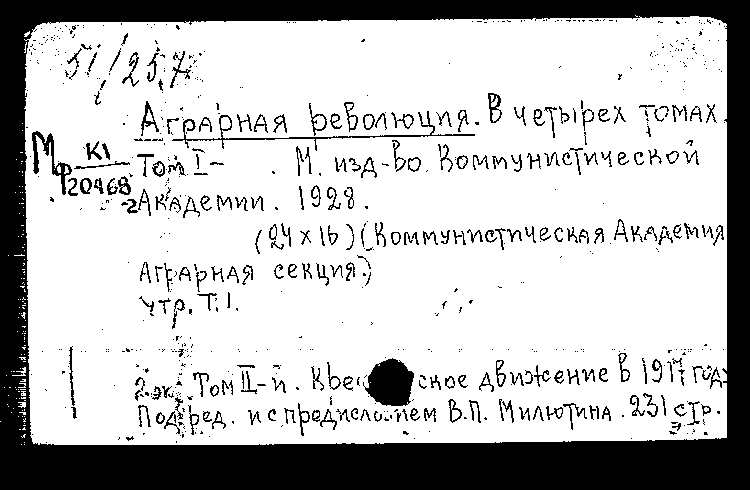 51/25.7
Аграрная революция. В четырех томах.
Мф К1
20468
Том I- . М. изд-во Коммунистической
-2 Академии. 1928.
(24 х 16) (Коммунистическая Академия
Аграрная секция.)
утр. Т. 1.
2 эк. Том II-й. ское движение в 1917 год
Под ред. и с предисловием В.П. Милютина. 231 стр.
э